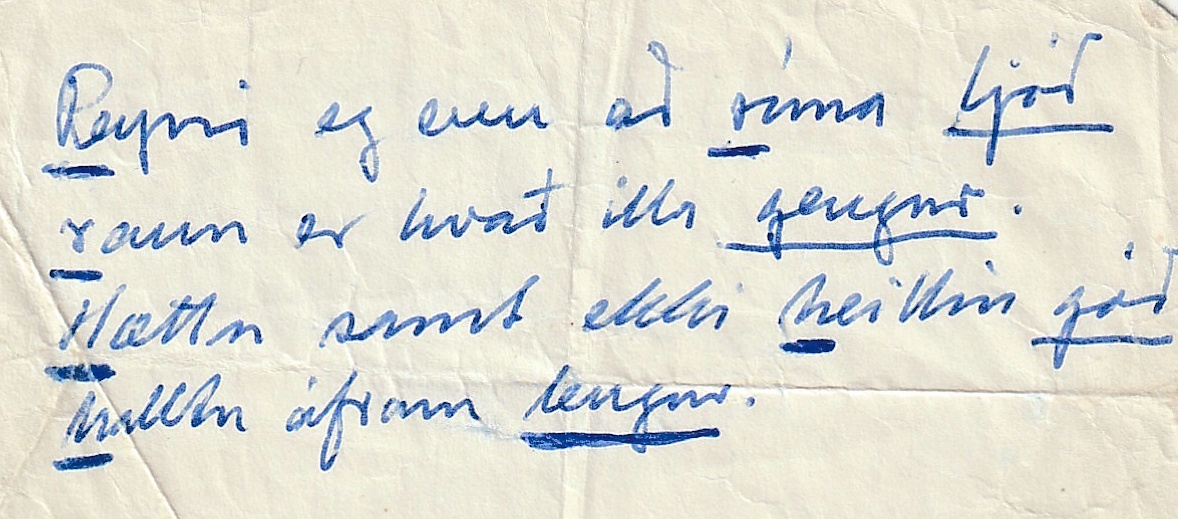 Reyni eg enn að ríma ljóð
raun er hvað illa gengur.
Hættu samt ekki heillin góð
halltu áfram lengur.